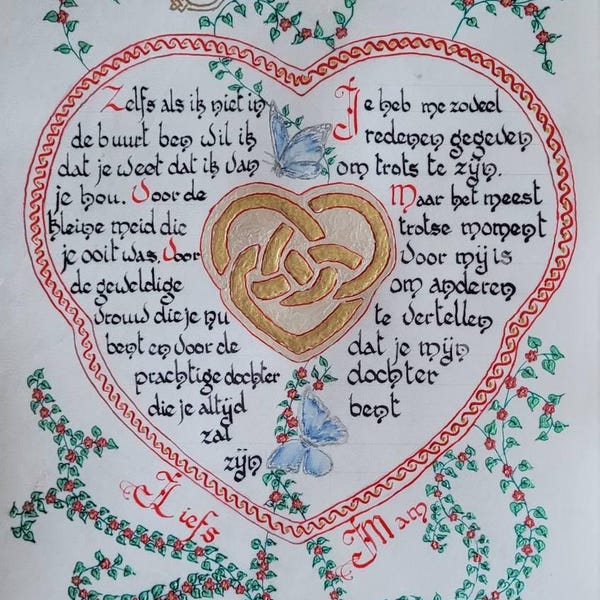 Zelfs als ik niet in
de buurt ben wil ik
dat je weet dat ik van
je hou. Voor de
kleine meid die
je ooit was. Voor
de geweldige
vrouw die je nu
bent en voor de
prachtige dochter
die je altijd
zal
zijn
Je heb me zoveel
redenen gegeven
om trots te zijn.
Maar het meest
trotse moment
voor mij is
om anderen
te vertellen
dat je mijn
dochter
bent
Liefs
Mam